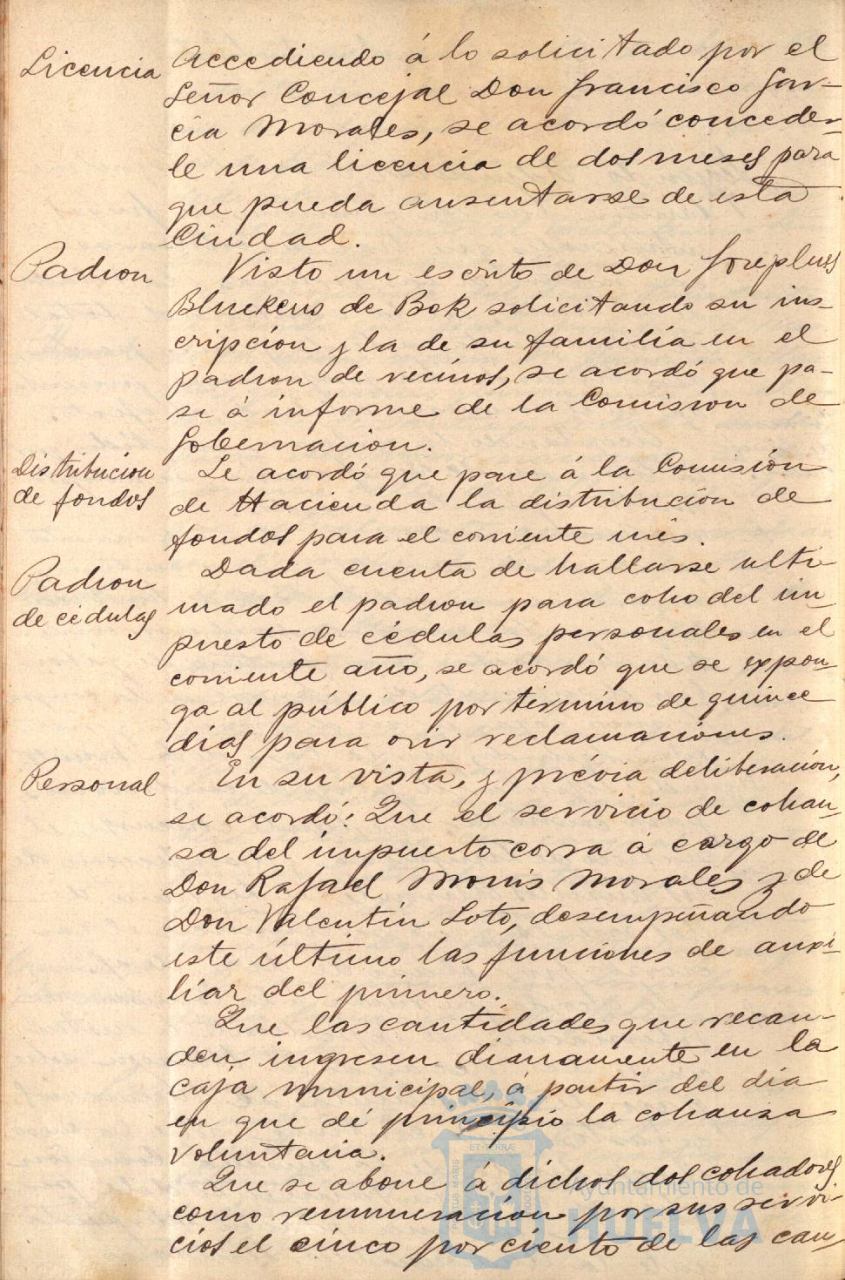 Licencia
Accediendo á lo solicitado por el
Señor Concejal Don Francisco Gar-
cia Morales, se acordó conceder-
le una licencia de dos meses para
que pueda ausentarse de esta
Ciudad.
Padron
Visto un escrito de Don Josephus
de Bok solicitando su ins-
cripción y la de su familia en el
padron de vecinos, se acordó que pa-
se á informe de la Comision de
Gobernacion.
Distribucion
de fondos
Se acordó que pase á la Comisión
de Hacienda la distribución de
fondos para el corriente mes.
Padron
de cédulas
Dada cuenta de hallarse ulti-
mado el padron para cobro del im-
puesto de cédulas personales en el
corriente año, se acordó que se expon-
ga al público por termino de quince
dias para oir reclamaciones.
Personal
En su vista, y prévia deliberación,
se acordó: Que el servicio de cobran-
sa del impuesto corra á cargo de
Don Rafael Monis Morales y de
Don Valentin Soto, desempeñando
este último las funciones de auxi-
liar del primero.
Que las cantidades que recau-
den ingresen diariamente en la
caja municipal, á partir del dia
en que dé principio la cobranza
voluntaria.
Que se abone á dichos dos cobradores
como remuneración por sus servi-
cios el cinco por ciento de las can-
Ayuntamiento de
HUELVA